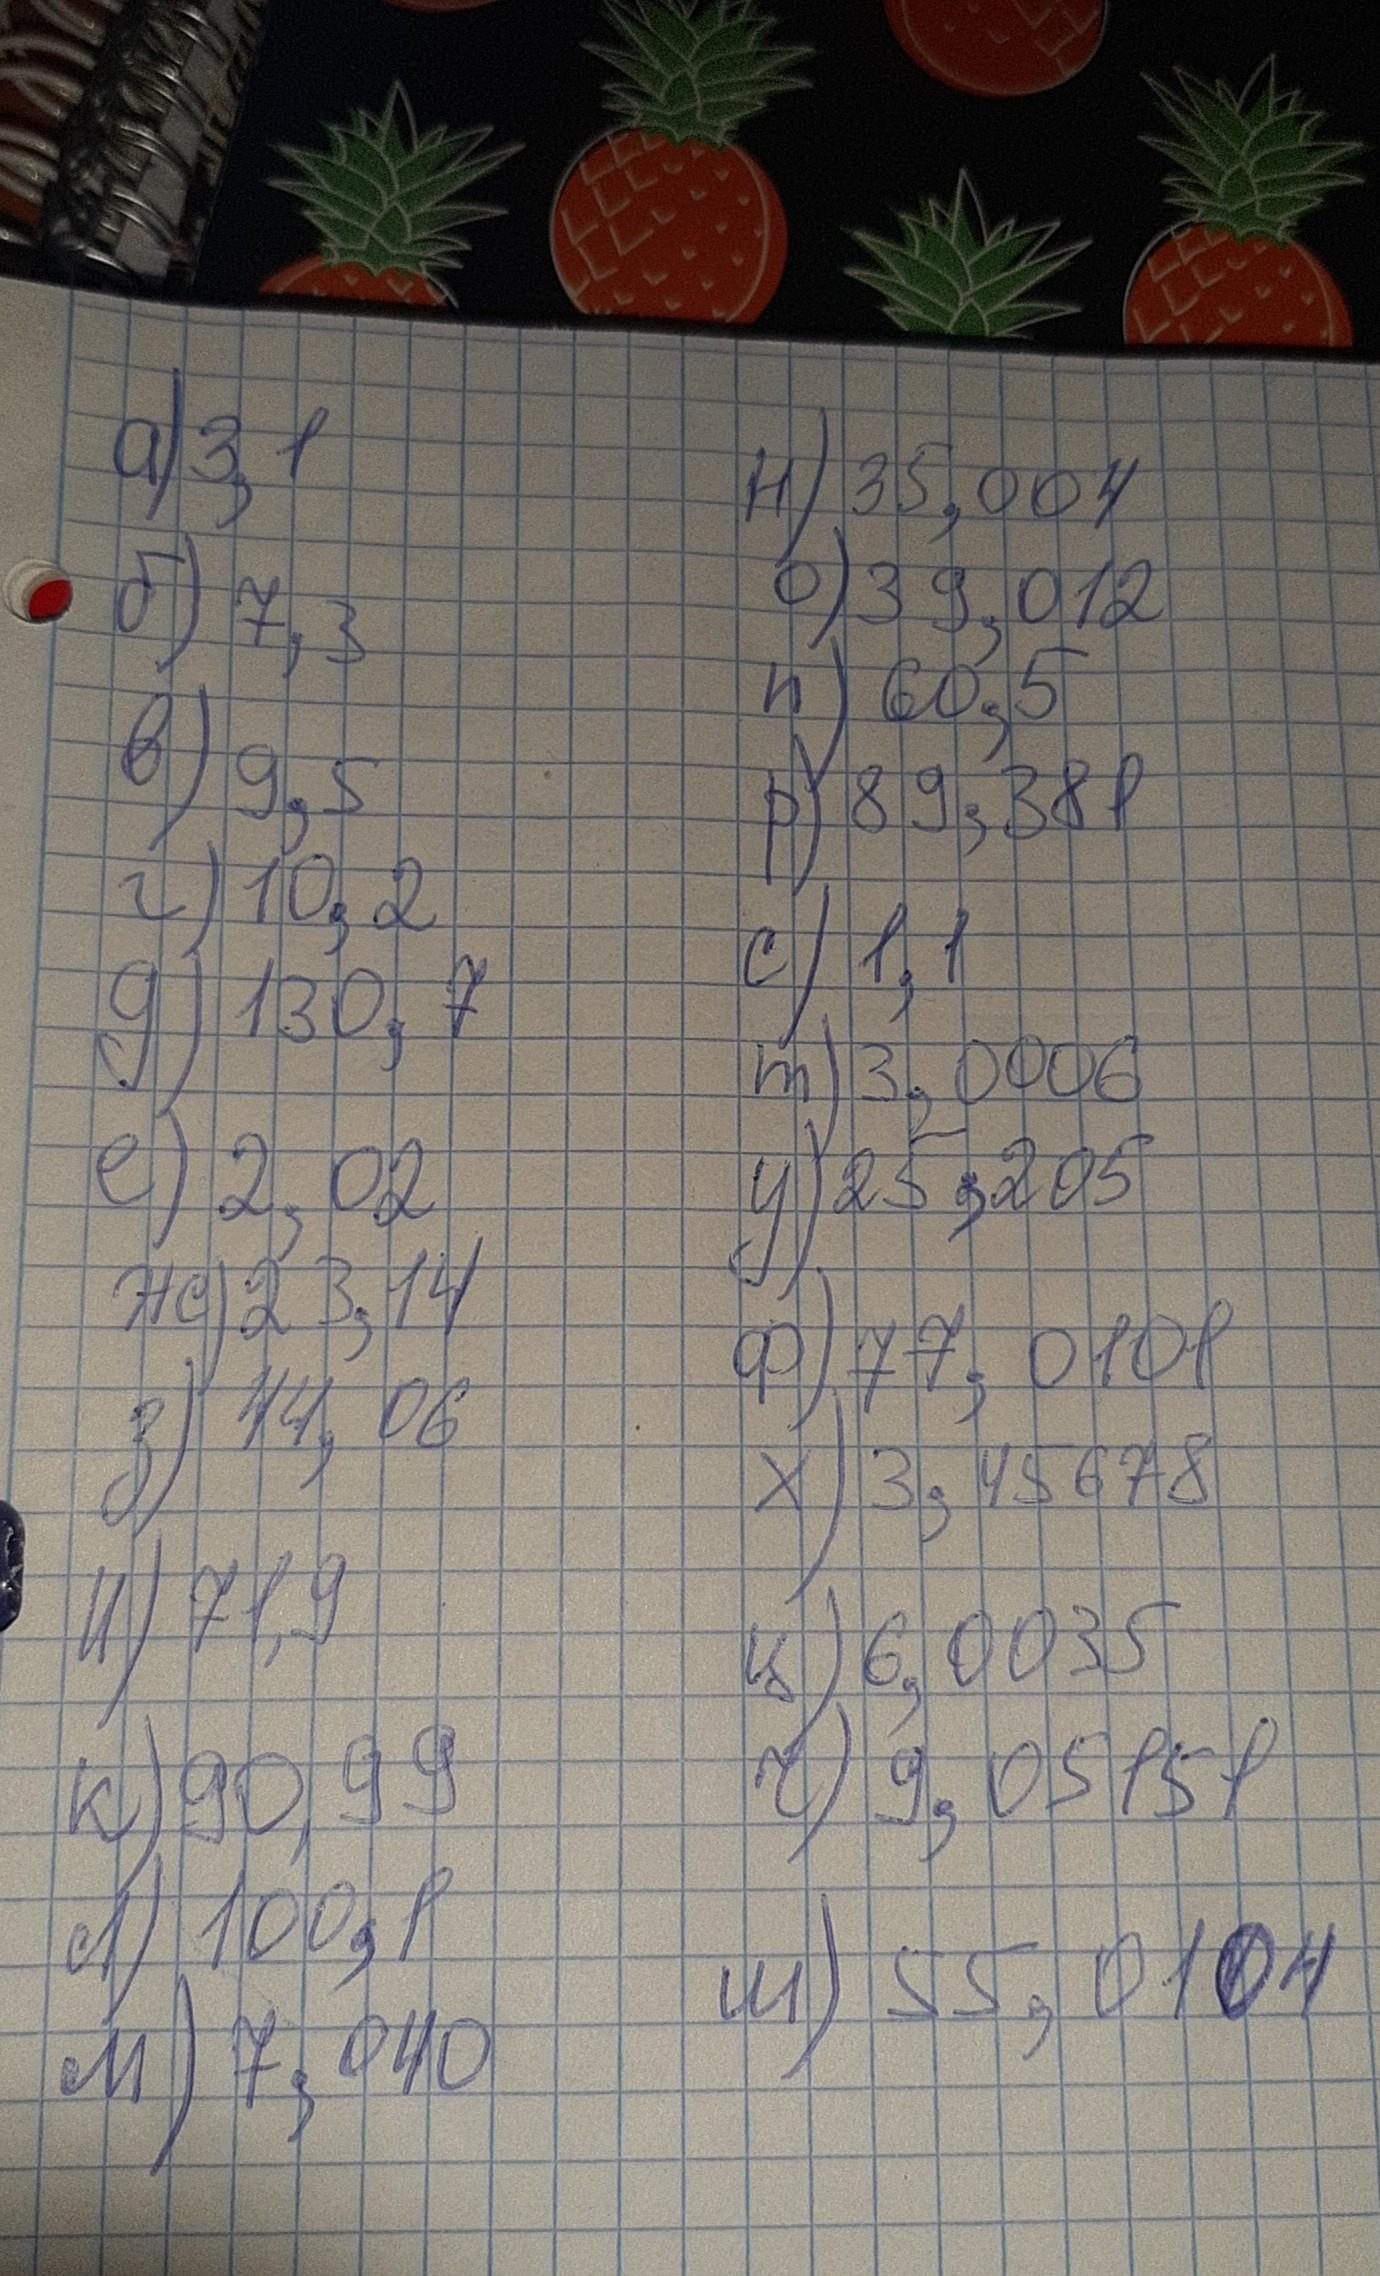 а) 3,1
б) 7,3
в) 9,5
г) 10,2
д) 130,7
е) 2,02
ж) 23,14
з) 44,06
и) 71,9
к) 90,99
л) 100,1
м) 7,040
н) 35,004
о) 39,012
п) 60,5
р) 89,381
с) 1,1
т) 3,0006
у) 25,205
ф) 77,0101
х) 3,45678
ц) 6,0035
ч) 9,05151
ш) 55,0104